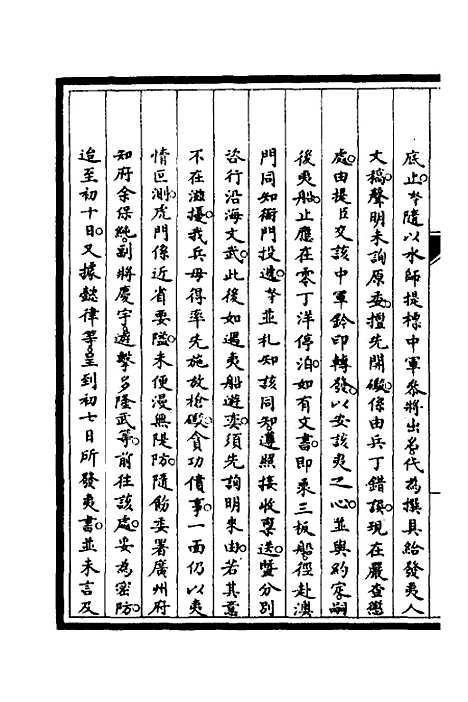 底止。孥隨以水師提標中軍叅將出名代為撰具給發夷人
文稿聲明未詢原委擅先開礮係由兵丁錯誤現在嚴查懲
處由提臣交該中軍鈐印轉發以安該夷之心並與約客嗣
後夷船止應在零丁洋停泊如有文書即乘三板船徑赴澳
門同知衙門投遞孥並札知該同知遵照接收稟送暨分別
咨行沿海文武此後如遇夷船遊奕須先詢明來由若其意
不在滋擾我兵毋得率先施放槍礮貪功僨事一面仍以夷
情叵測虎門係近省要隘未便漫無隄防隨飭委署廣州府
知府余保純副將慶宇遊擊多隆武等前往該處妥為密防
迨至初十日又據懿律等呈到初七日所發夷書並未言及